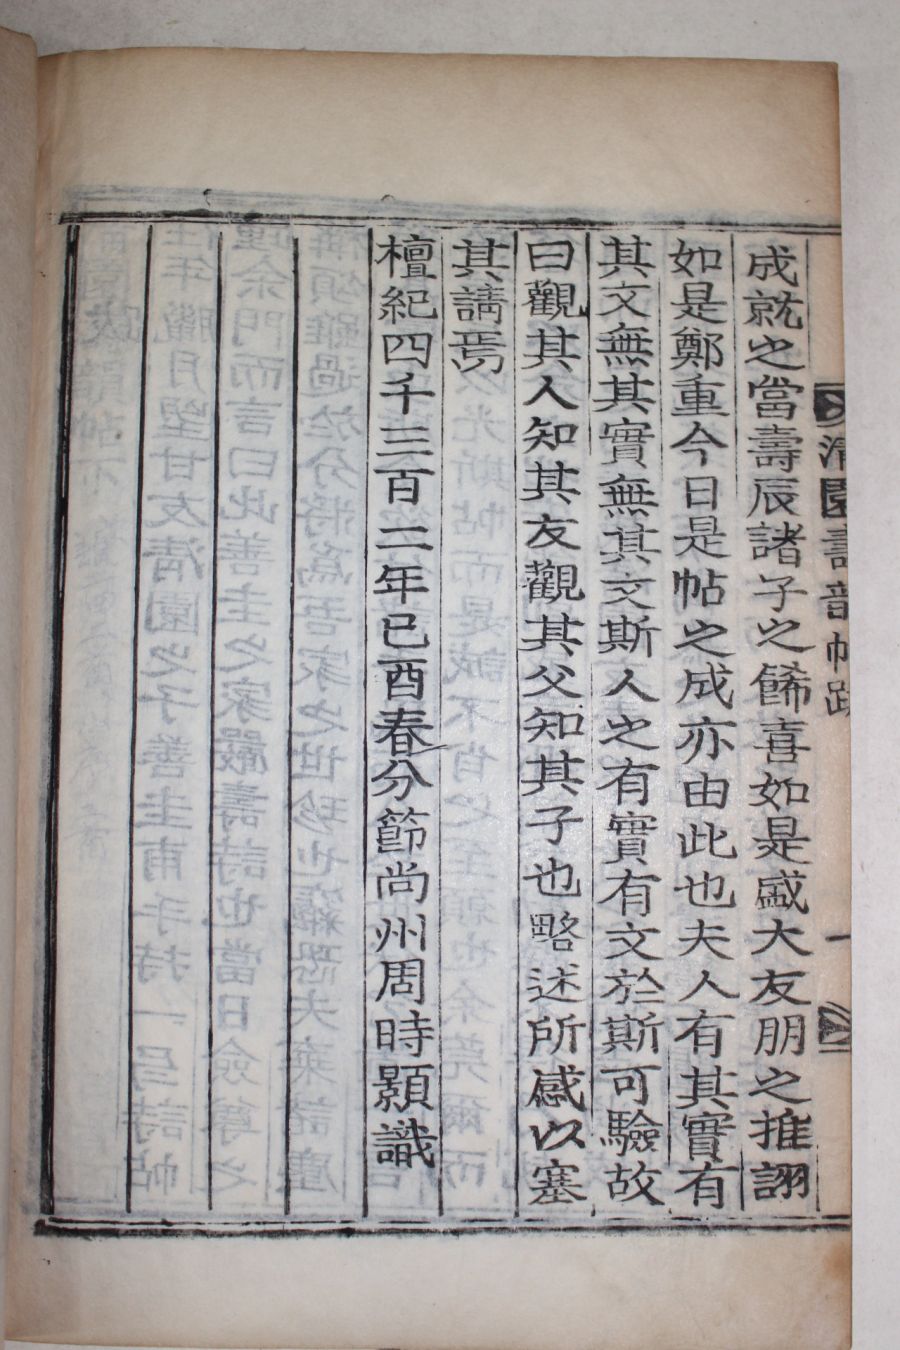 淸園壽韻帖跋
一
成就之當壽辰諸子之餙喜如是盛大友朋之推詡
如是鄭重今日是帖之成亦由此也夫人有其實有
其文無其實無其文斯人之有實有文於斯可驗故
曰觀其人知其友觀其父知其子也略述所感以塞
其請焉
檀紀四千三百二年己酉春分節尚州周時顯識